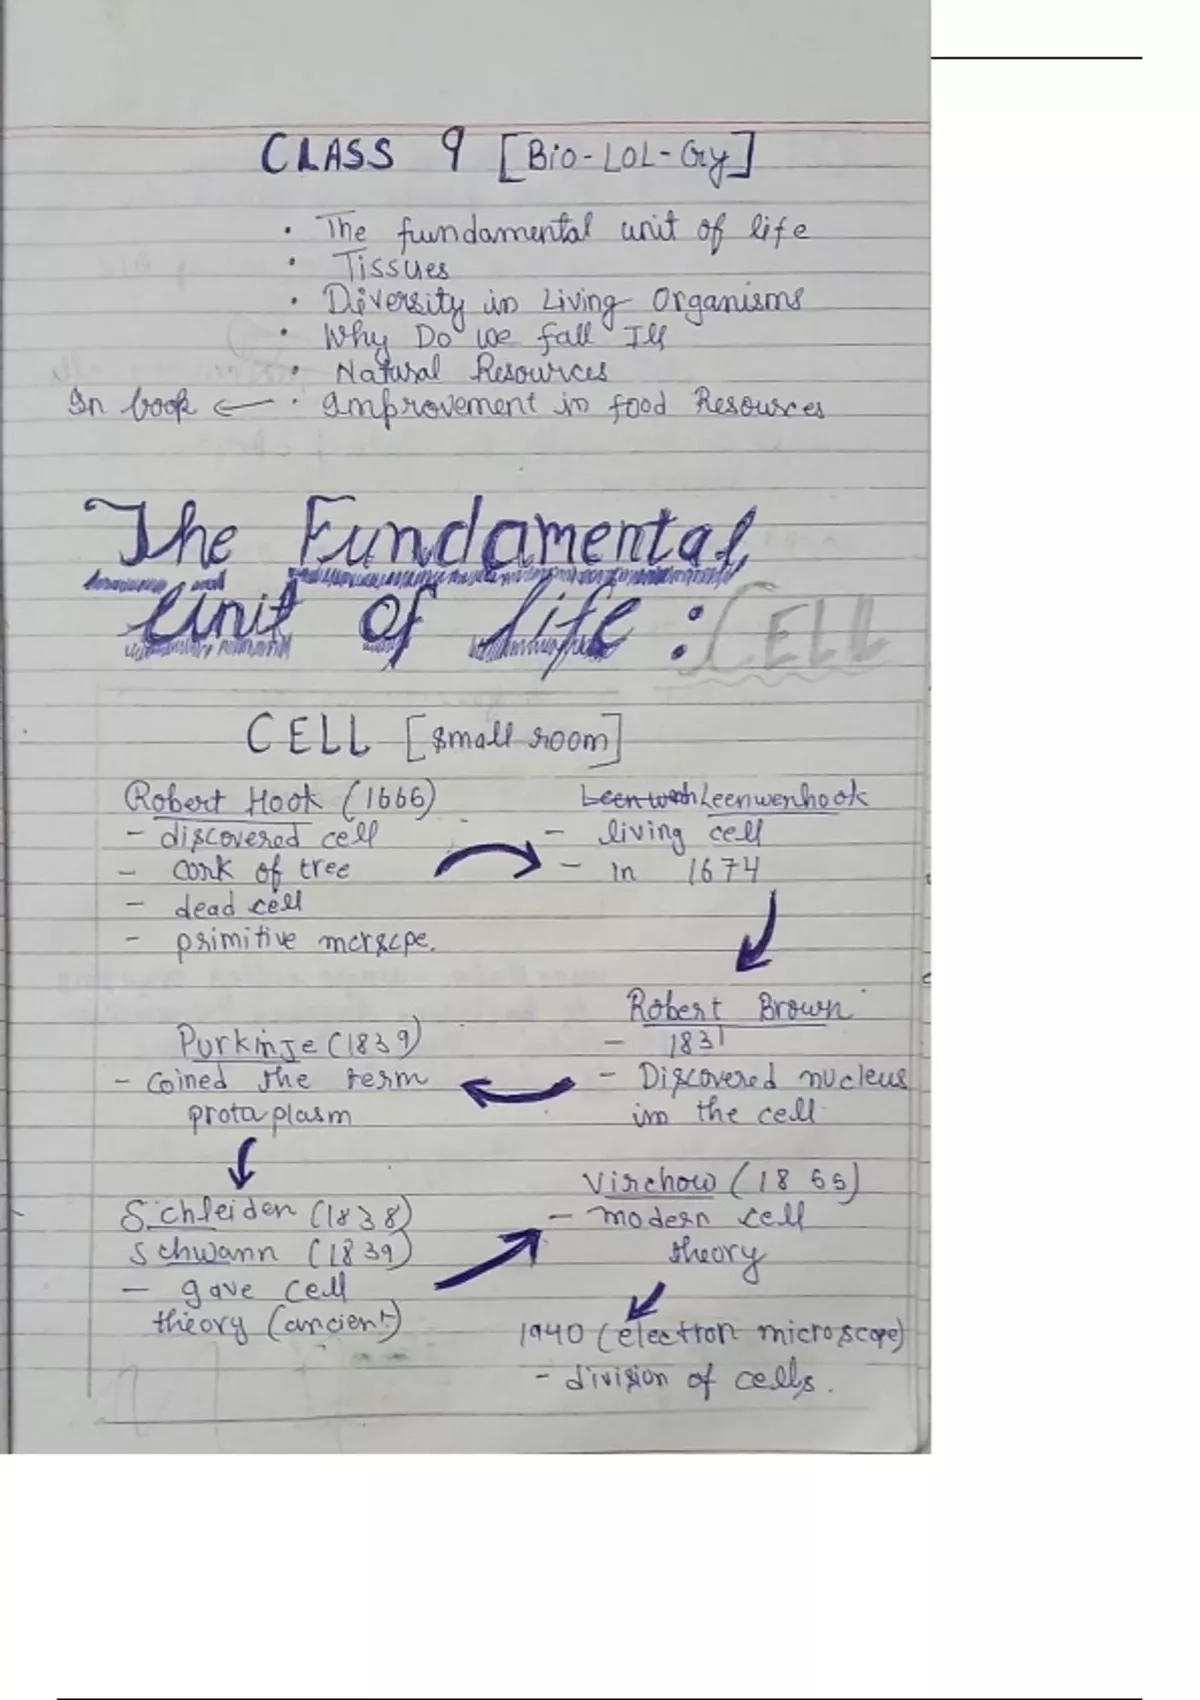 CLASS 9 [Bio-LOL-Gry]
• The fundamental unit of life
• Tissues
• Diversity in Living Organisms
• Why Do we fall Ill
• Natural Resources
In book ← • Improvement in food Resources
The Fundamental
Unit of life : CELL
CELL [small room]
Robert Hook (1666)
- discovered cell
- cork of tree
- dead cell
- primitive mcrscpe.
Leenwenhook
- living cell
- in 1674
Robert Brown
- 1831
- Discovered nucleus
in the cell
Purkinje (1839)
- Coined the term
protoplasm
Schleiden (1838)
Schwann (1839)
- gave cell
theory (ancient)
Virchow (1855)
- modern cell
theory
1940 (electron microscope)
- division of cells.